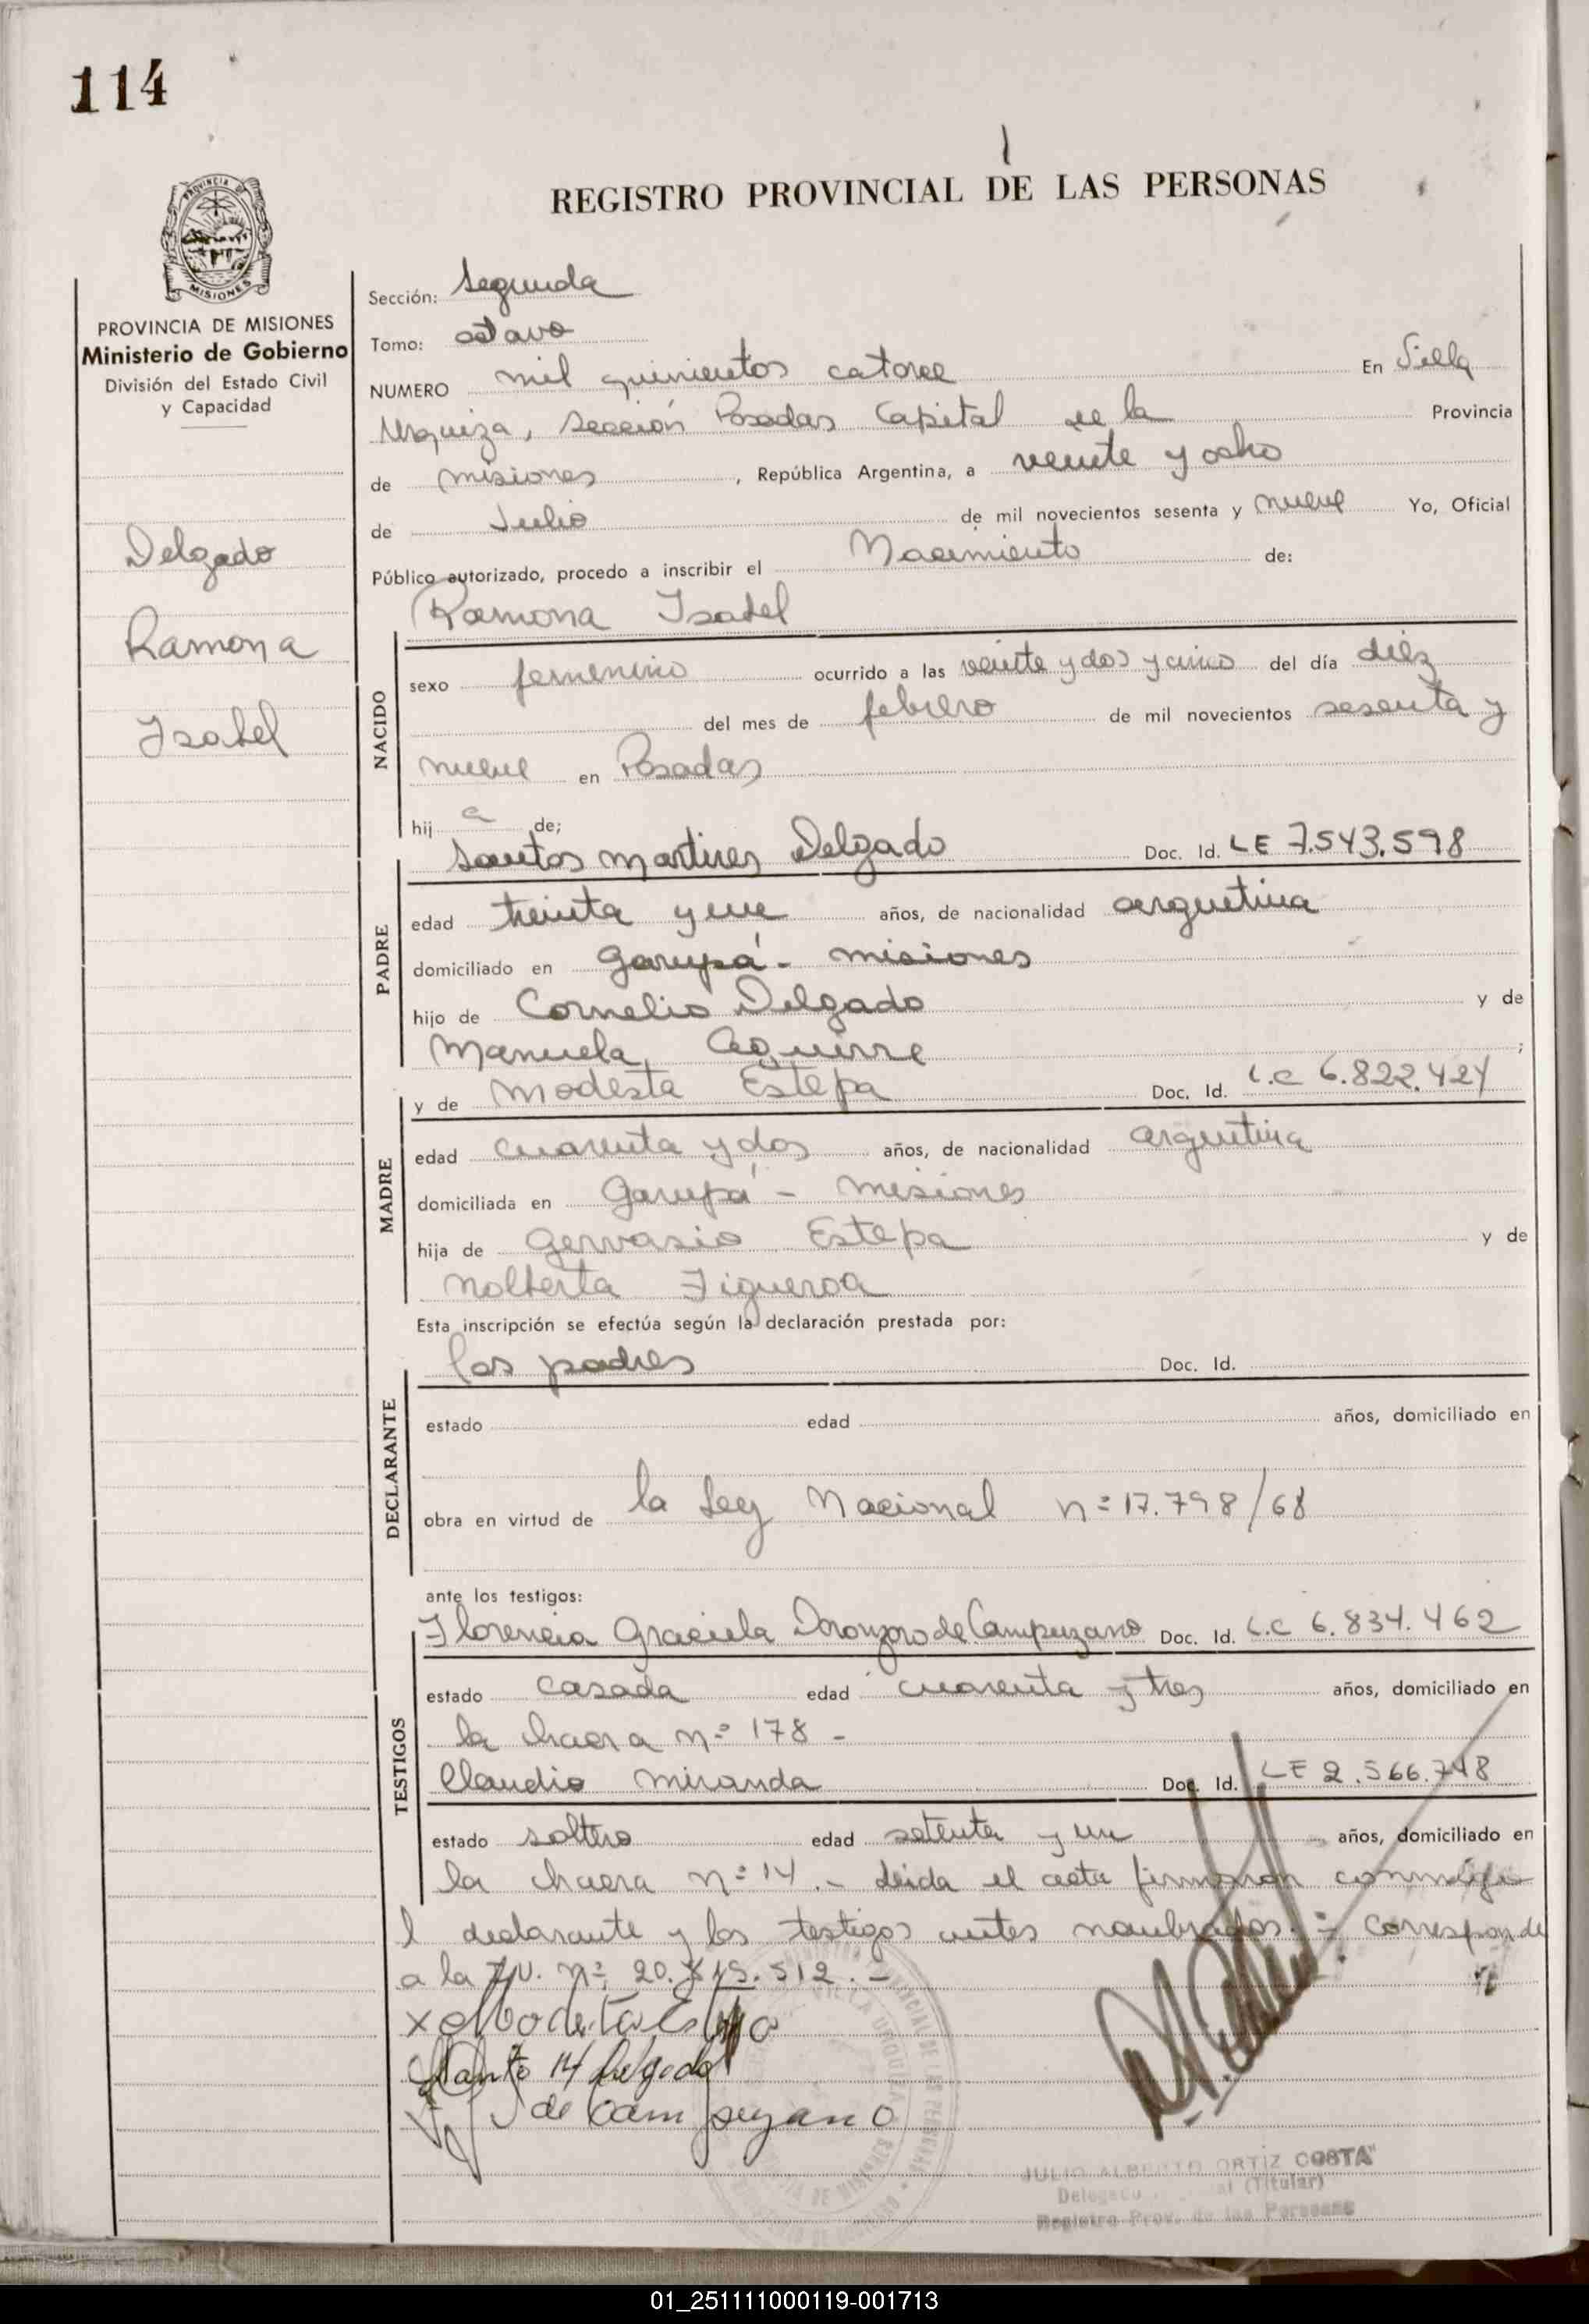 114
REGISTRO PROVINCIAL DE LAS PERSONAS
PROVINCIA DE MISIONES
MISIONES
PROVINCIA DE MISIONES
Ministerio de Gobierno
División del Estado Civil
y Capacidad
Delgado
Ramona
Isabel
Sección: Segunda
Tomo: octavo
NUMERO mil quinientos catorce En Villa
Urquiza, Sección Posadas Capital de la Provincia
de misiones, República Argentina, a veinte y ocho
de Julio de mil novecientos sesenta y nueve Yo, Oficial
Público autorizado, procedo a inscribir el Nacimiento de:
Ramona Isabel
NACIDO
sexo femenino ocurrido a las veinte y dos y cinco del día diez
del mes de febrero de mil novecientos sesenta y
nueve en Posadas
hij a de;
Santos Martires Delgado Doc. Id. LE 7.543.598
PADRE
edad treinta y un años, de nacionalidad argentina
domiciliado en garupá - misiones
hijo de Cornelio Delgado y de
Manuela Aguirre ;
y de Modesta Estepa Doc. Id. L.C 6.822.424
MADRE
edad cuarenta y dos años, de nacionalidad argentina
domiciliada en garupá - misiones
hija de gervasio Estepa y de
Nolberta Figueroa
Esta inscripción se efectúa según la declaración prestada por:
los padres Doc. Id.
DECLARANTE
estado edad años, domiciliado en
obra en virtud de la Ley Nacional nº 17.798/68
ante los testigos:
Florencia Graciela Doronzoro de Campuzano Doc. Id. L.C 6.834.462
TESTIGOS
estado casada edad cuarenta y tres años, domiciliado en
la chacra nº 178 -
Claudio miranda Doc. Id. LE 2.566.748
estado soltero edad setenta y un años, domiciliado en
la chacra nº 14 .- Leida el acta firmaron conmigo
l declarante y los testigos antes nombrados. - Corresponde
a la nº 512 . -
x Modesta Estepa
Santo M Delgado
de Campuzano
JULIO ALBERTO ORTIZ COSTA
Delegado (Titular)
Registro Prov. de las Personas
01_251111000119-001713